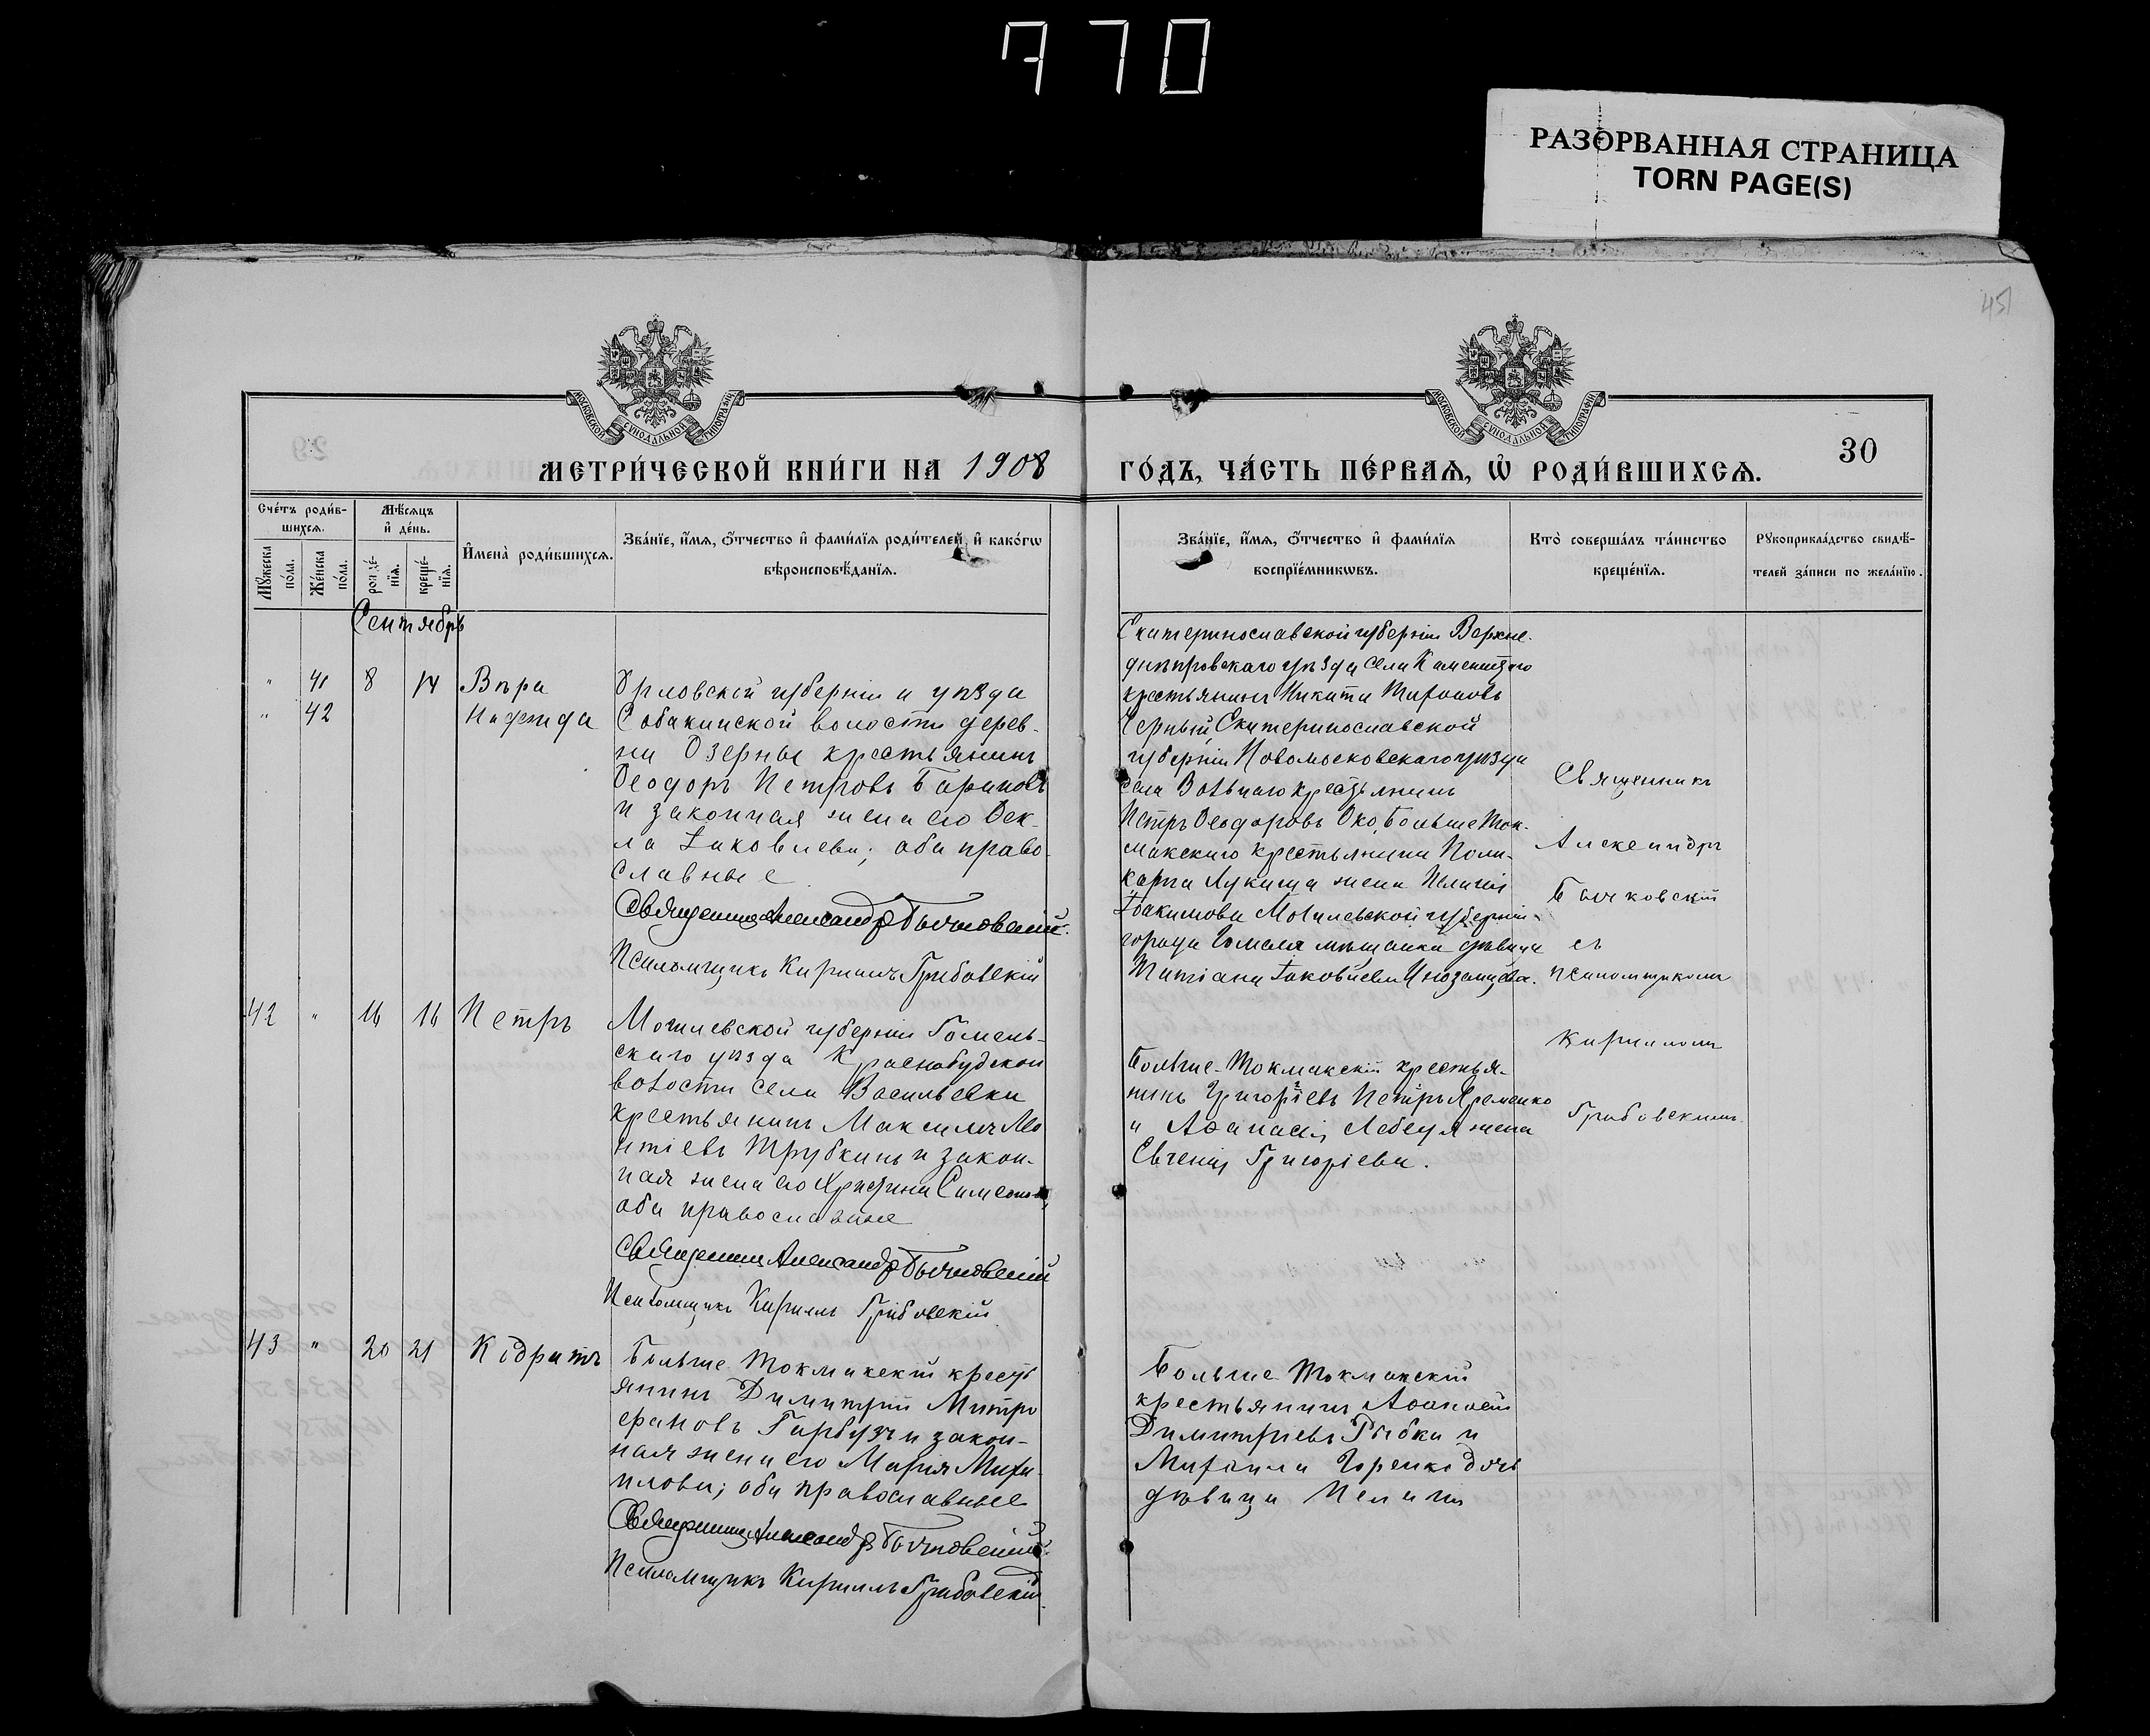 770
РАЗОРВАННАЯ СТРАНИЦА
TORN PAGE(S)
45
МОСКОВСКОЙ СУНОДАЛЬНОЙ ТИПОГРАФІИ
МОСКОВСКОЙ СУНОДАЛЬНОЙ ТИПОГРАФІИ
МЕТРИ́ЧЕСКОЙ КНИ́ГИ НА 1908
ГО́ДЪ, ЧА́СТЬ ПЕ́РВАѦ, Ѡ҆ РОДИ́ВШИХСѦ.
30
Сче́тъ роди́в-
шихсѧ.
Мꙋ́жеска по́ла.
Же́нска по́ла.
Мѣ́сѧцъ
и҆ де́нь.
рожде́-нїѧ.
креще́-нїѧ.
И҆мена̀ роди́вшихсѧ.
Зва́нїе, и҆́мѧ, ѻ҆́тчество и҆ фами́лїѧ роди́телей, и҆ како́гѡ
вѣроисповѣ́данїѧ.
Зва́нїе, и҆́мѧ, ѻ҆́тчество и҆ фами́лїѧ
воспрїе́мникѡвъ.
Кто̀ соверша́лъ та́инство
креще́нїѧ.
Рꙋкоприкла́дство свидѣ́-
телей за́писи по жела́нїю.
Сентябрь
" 41 8 14 Вѣра
" 42 Надежда
Орловской губерніи и уѣзда
Собакинской волости дерев-
ни Озерные крестьянинъ
Ѳеодоръ Петровъ Бариновъ
и законная жена его Ѳек-
ла Іаковлева; оба право-
славные
Священникъ Александръ Бычковскій.
Псаломщикъ Кириллъ Грибовскій
Екатеринославской губерніи Верхне-
днѣпровскаго уѣзда села
крестьянинъ Никита Тихоновъ
Черный, Екатеринославской
губерніи Новомосковскаго уѣзда
села Вольнаго крестьянинъ
Петръ Ѳеодоровъ Око, Больше Ток-
макскаго крестьянина Поли-
карпа Лукаша жена Пелагія
Іоакимова Могилевской губерніи
города Гомеля мѣщанка дѣвица
Татіана Іаковлева
Священникъ
Александръ
Бычковскій
съ
псаломщикомъ
Кирилломъ
Грибовскимъ.
42 " 14 14 Петръ
Могилевской губерніи Гомель-
скаго уѣзда Краснобудской
волости села Васильевки
крестьянинъ Максимъ
Трубкинъ и закон-
ная жена его Христина
оба православные
Священникъ Александръ Бычковскій
Псаломщикъ Кириллъ Грибовскій
Больше-Токмакскій крестья-
нинъ Григоріевъ Петръ Яременко
и Аѳанасія Лебедя жена
Евгенія Григоріева.
43 " 20 21 Кодратъ
Больше Токмакскій кресть
янинъ Димитрій Митро
фановъ Гарбузъ и закон-
ная жена его Марія Миха-
илова; оба православные
Священникъ Александръ Бычковскій.
Псаломщикъ Кириллъ Грибовскій.
Больше Токмакскій
крестьянинъ Аѳанасій
Димитріевъ Рыбка и
Михаила Горенко дочь
дѣвица Пелагія